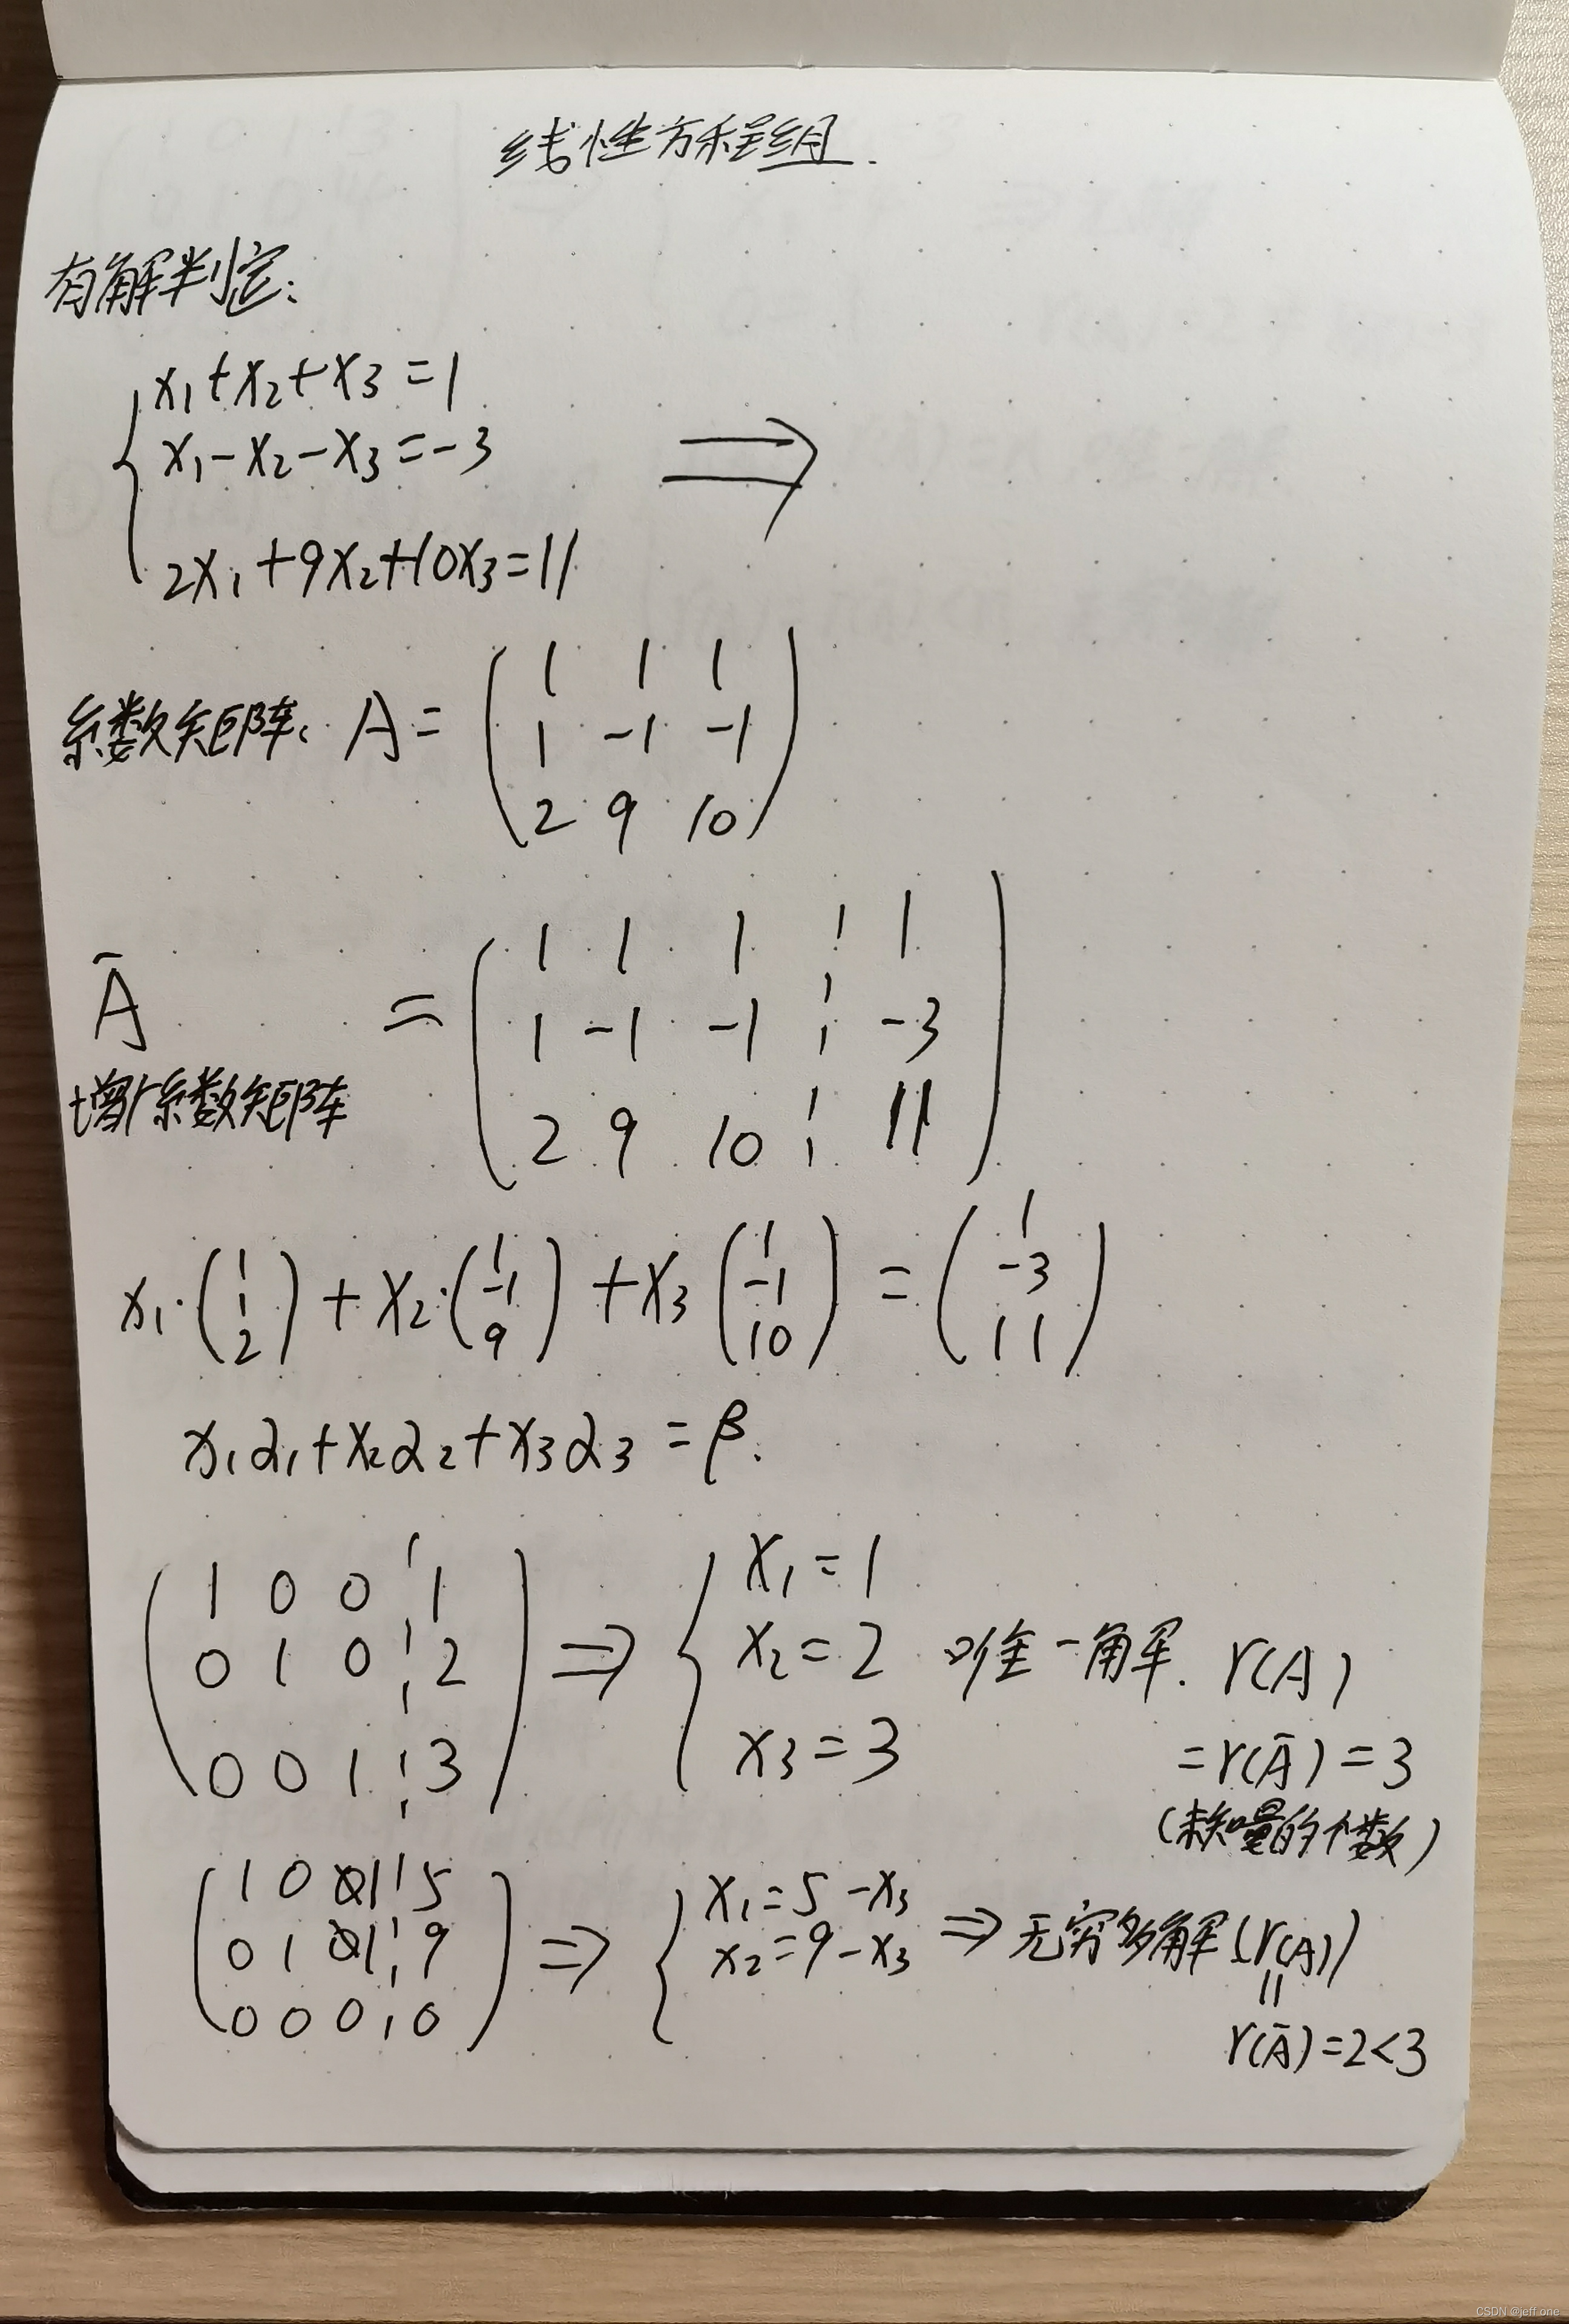 线性方程组.
有解判定:
x₁+x₂+x₃=1
x₁-x₂-x₃=-3 ⇒
2x₁+9x₂+10x₃=11
系数矩阵: A=
1 1 1
1 -1 -1
2 9 10
Ā =
增广系数矩阵
1 1 1 ¦ 1
1 -1 -1 ¦ -3
2 9 10 ¦ 11
x₁·(1 1 2)+x₂·(1 -1 9)+x₃(1 -1 10)=(1 -3 11)
x₁α₁+x₂α₂+x₃α₃=β.
1 0 0 ¦ 1 ⇒ x₁=1
0 1 0 ¦ 2 x₂=2 唯一解. r(A)
0 0 1 ¦ 3 x₃=3 =r(Ā)=3
(未知量的个数)
1 0 1 ¦ 5 ⇒ x₁=5-x₃
0 1 1 ¦ 9 x₂=9-x₃ ⇒ 无穷多解(r(A))
0 0 0 ¦ 0 =
r(Ā)=2<3
CSDN @jeff one